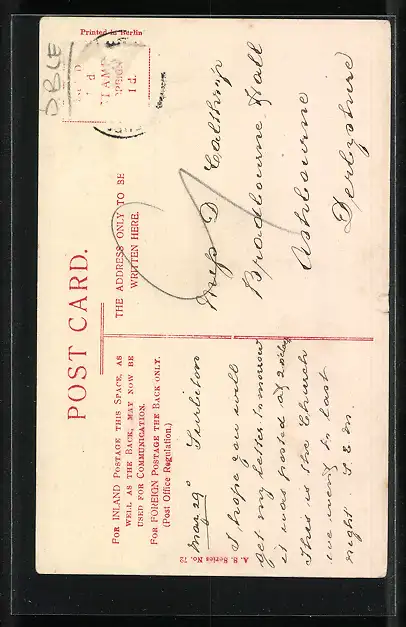 Printed in Berlin
DBLE
POST CARD.
FOR INLAND POSTAGE THIS SPACE, AS
WELL AS THE BACK, MAY NOW BE
USED FOR COMMUNICATION.
FOR FOREIGN POSTAGE THE BACK ONLY.
(Post Office Regulation.)
THE ADDRESS ONLY TO BE
WRITTEN HERE.
1 d.
Mar 29 Surbiton
I hope you will
get my letter tomorrow
it was posted at
This is the Church
we went to last
night. S. E. M.
Miss D. Calthrop
Bradbourne Hall
Ashbourne
Derbyshire
A. S. Series No. 72